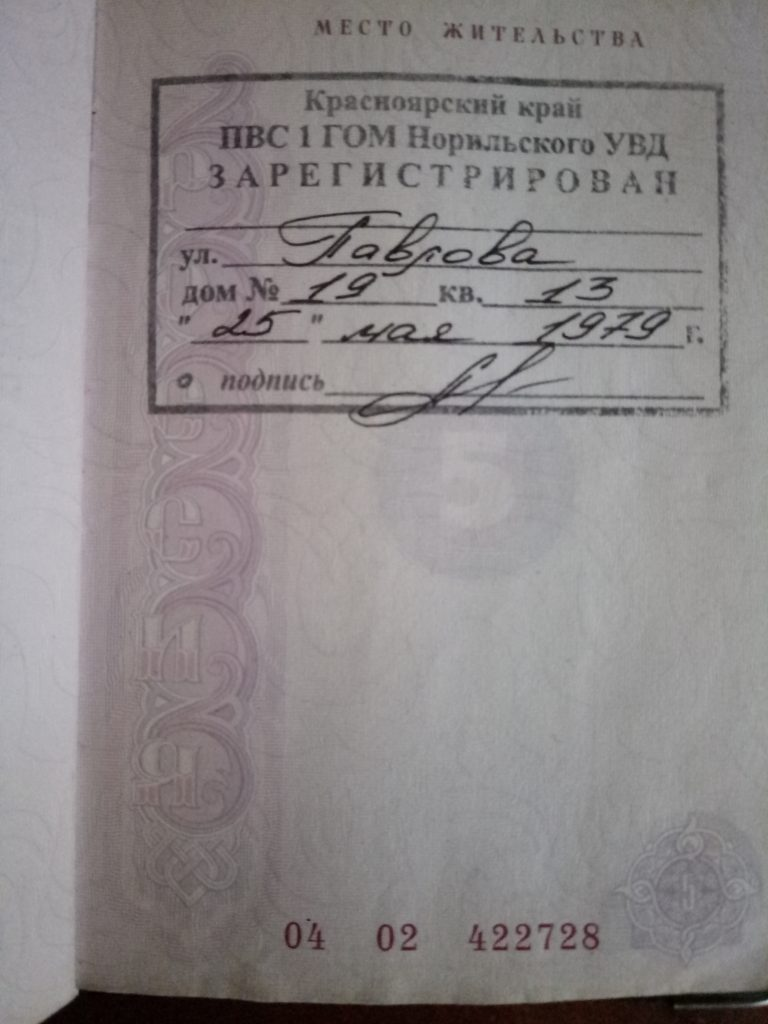 МЕСТО ЖИТЕЛЬСТВА
Красноярский край
ПВС 1 ГОМ Норильского УВД
ЗАРЕГИСТРИРОВАН
ул. Павлова
дом № 19 кв. 13
" 25 " мая 1979 г.
подпись
5
5
04 02 422728